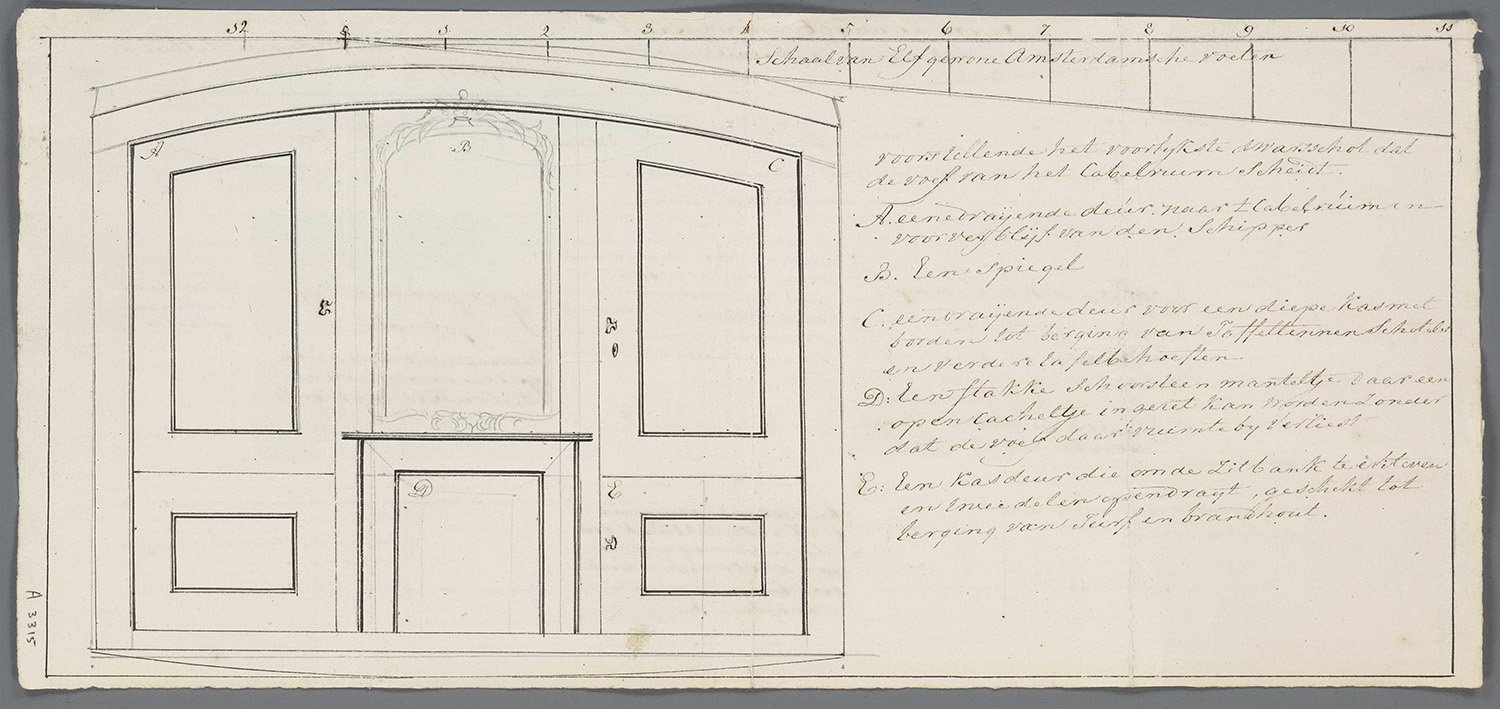 12 1 2 3 4 5 6 7 8 9 10 11
Schaal van Elf gewone Amsterdamsche voeten
voorstellende het voorlykste dwarsschot dat
de roef van het Cabelruim Scheidt.
A. eene drayende deur naar 't Cabelruim en
voorverblyf van den Schipper
B. Een Spiegel
C. een draijende deur voor een diepe kas met
borden tot berging van Taffellinnen Schotels
en verdere tafelbehoeften
D: Een flakke Schoorsteen manteltje daar een
open Cacheltje in gezet kan worden zonder
dat de roef daar ruimte by verliest
E: Een kasdeur die om de Zitbank te
in twee delen opendraayt, geschikt tot
berging van Turf en brandhout.
A
B
C
D
E
A 3315